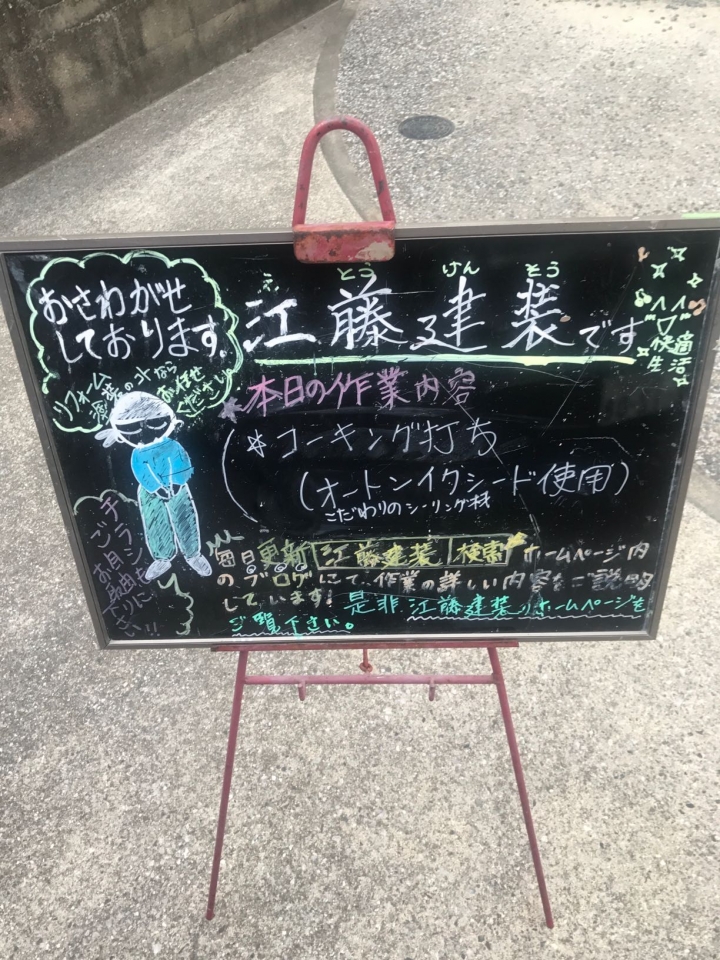 おさわがせ
しております。
リフォーム
塗装の事なら
お任せ
ください
えとうけんそう
江藤建装です
快適
生活
本日の作業内容
☆コーキング打ち
(オートンイクシード使用)
こだわりのシーリング材
チラシ
ご自由に
お取り下さい!!
毎日更新 江藤建装 検索 ホームページ内
のブログにて、作業の詳しい内容をご説明
しています! 是非江藤建装のホームページを
ご覧下さい。